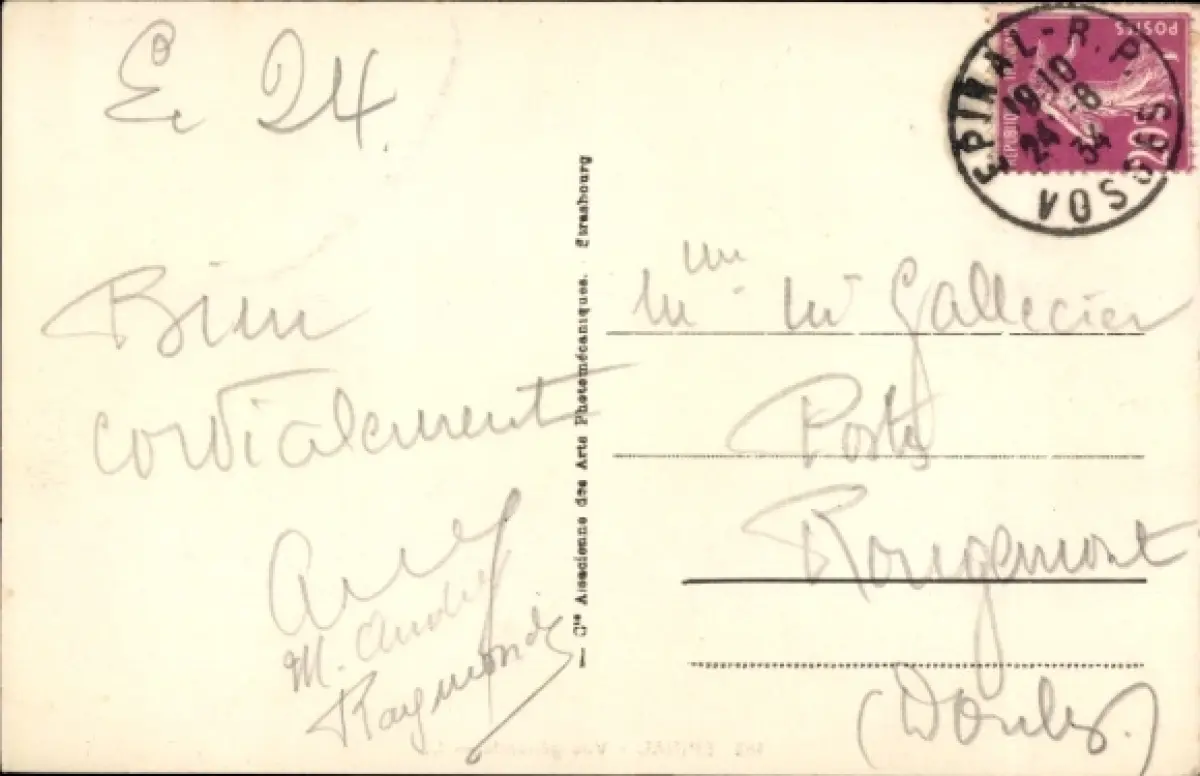 E. 24.
Bien
cordialement
M. André
Raymonde
— Cie Alsacienne des Arts Photomécaniques. Strasbourg
EPINAL - R.P.
19 10
24 -8
34
VOSGES
POSTES
REPUBLIQUE FRANÇAISE
20c
Gallecier
Poste
Rougemont
(Doubs)
EPINAL - Vue générale